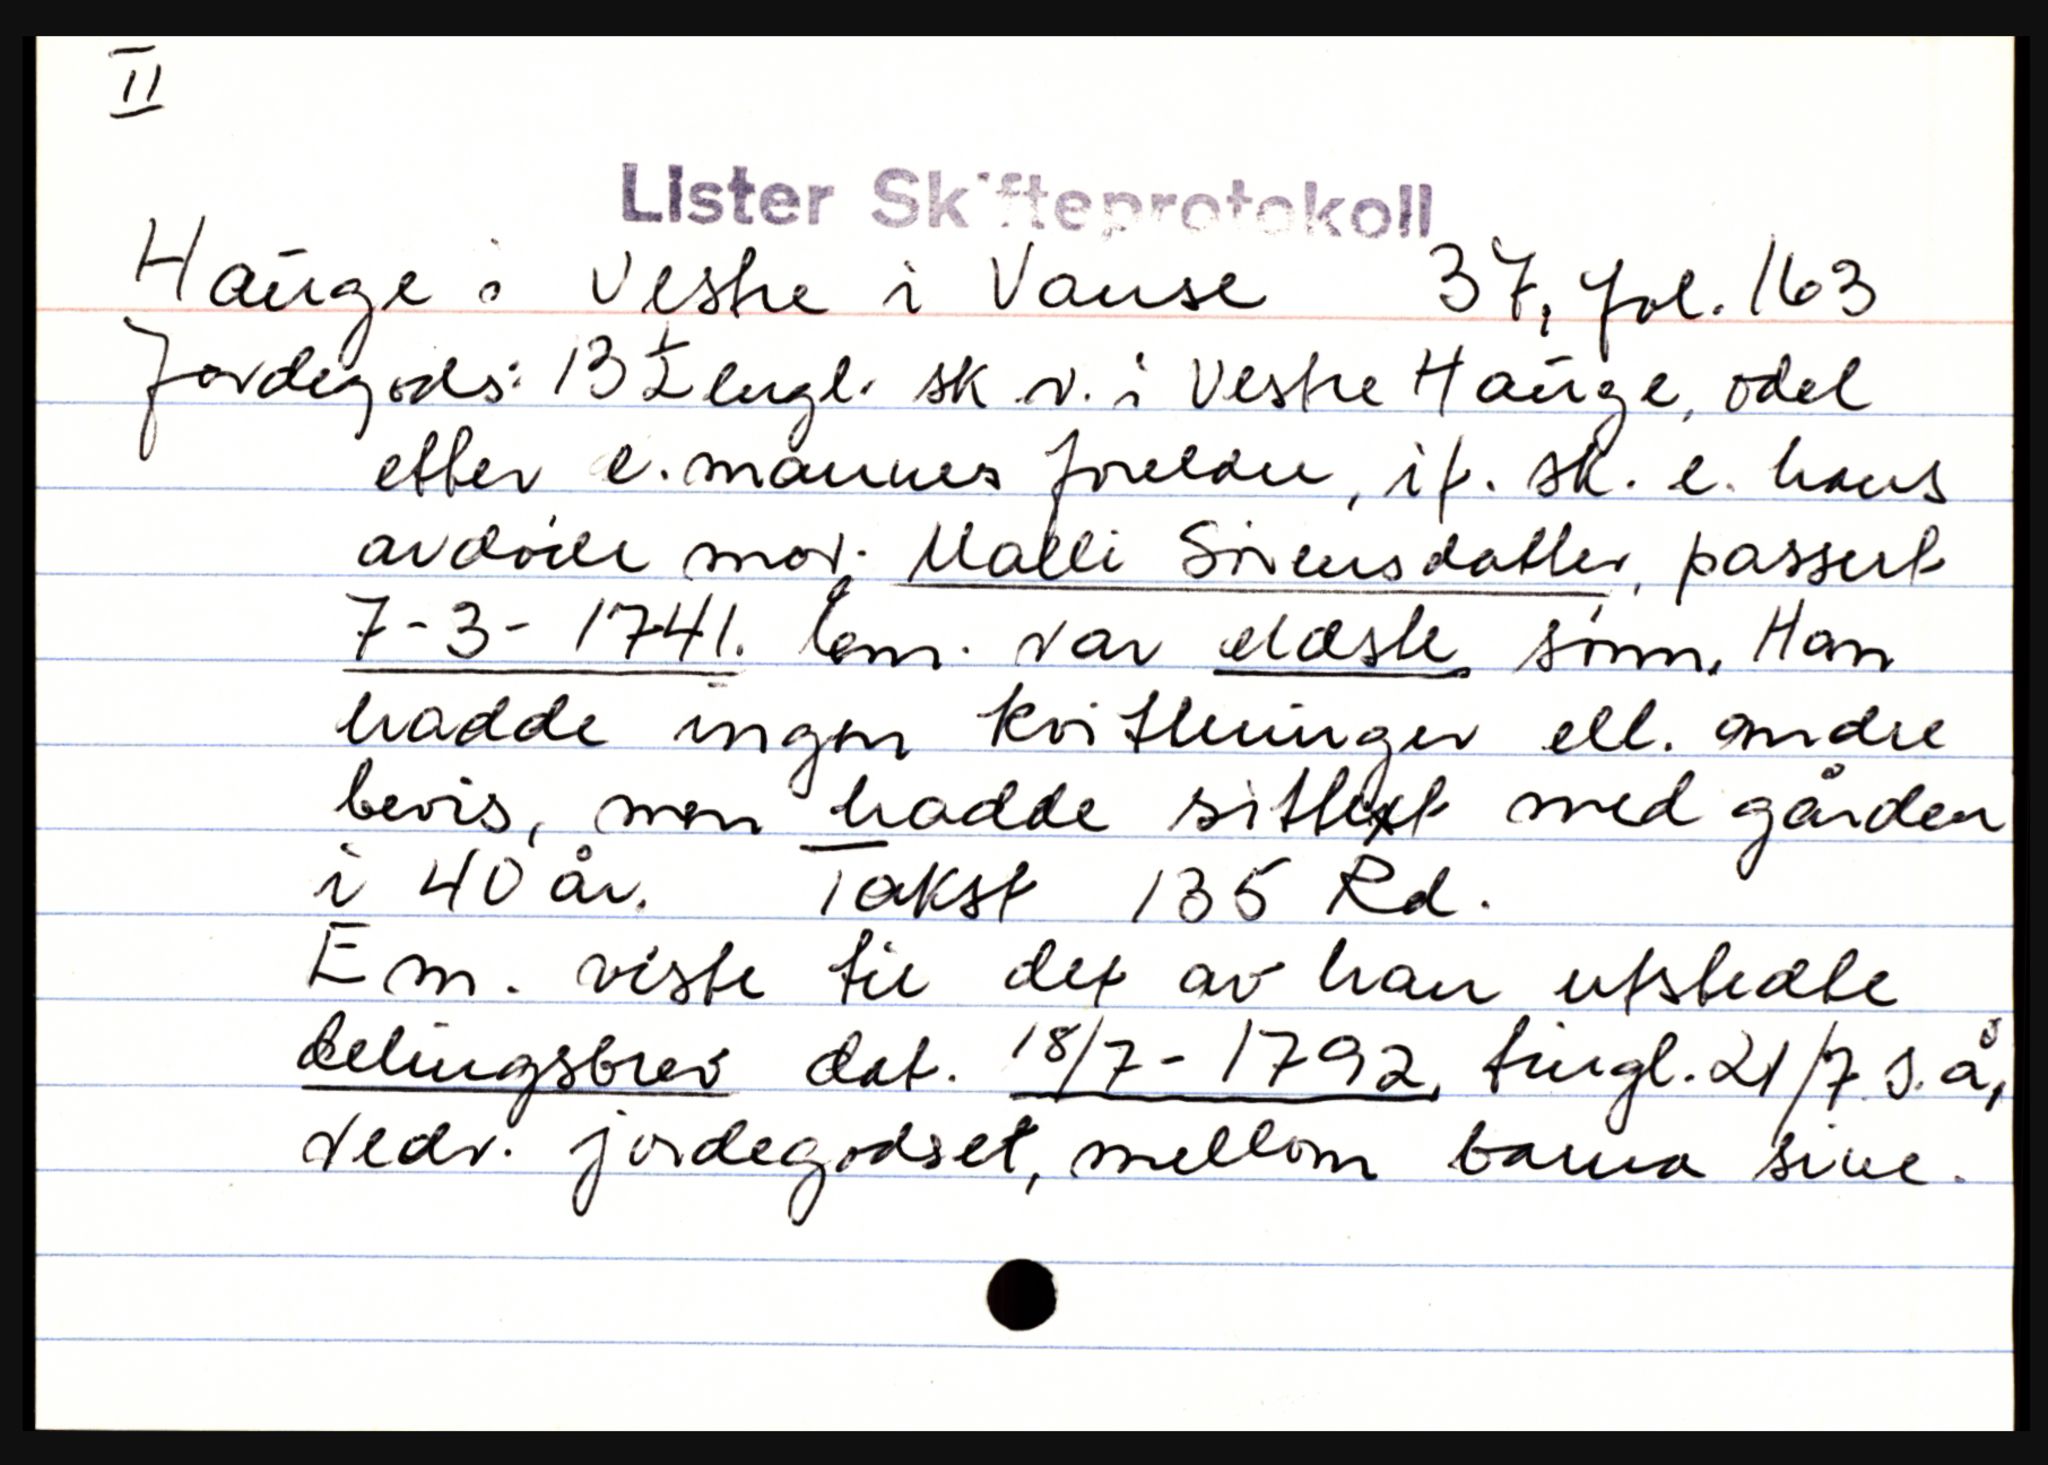 II
Lister Skifteprotokoll
Hauge i Vestre i Vanse 37, fol. 163
Jordegods: 13 1/2 engl. sk v. i Vestre Hauge, odel
etter e. mannes foreldre, if. sk. e. hans
avdøde mor. Malli Sørensdatter, passert
7-3-1741. Em. var eldste sønn. Han
hadde ingen kvitteringer ell. andre
bevis, men hadde sittet med gården
i 40 år. Takst 135 Rd.
Em. viste til det av han utstedte
delingsbrev dat. 18/7-1792, tingl. 21/7 s. å,
vedr. jordegodset, mellom barna sine.